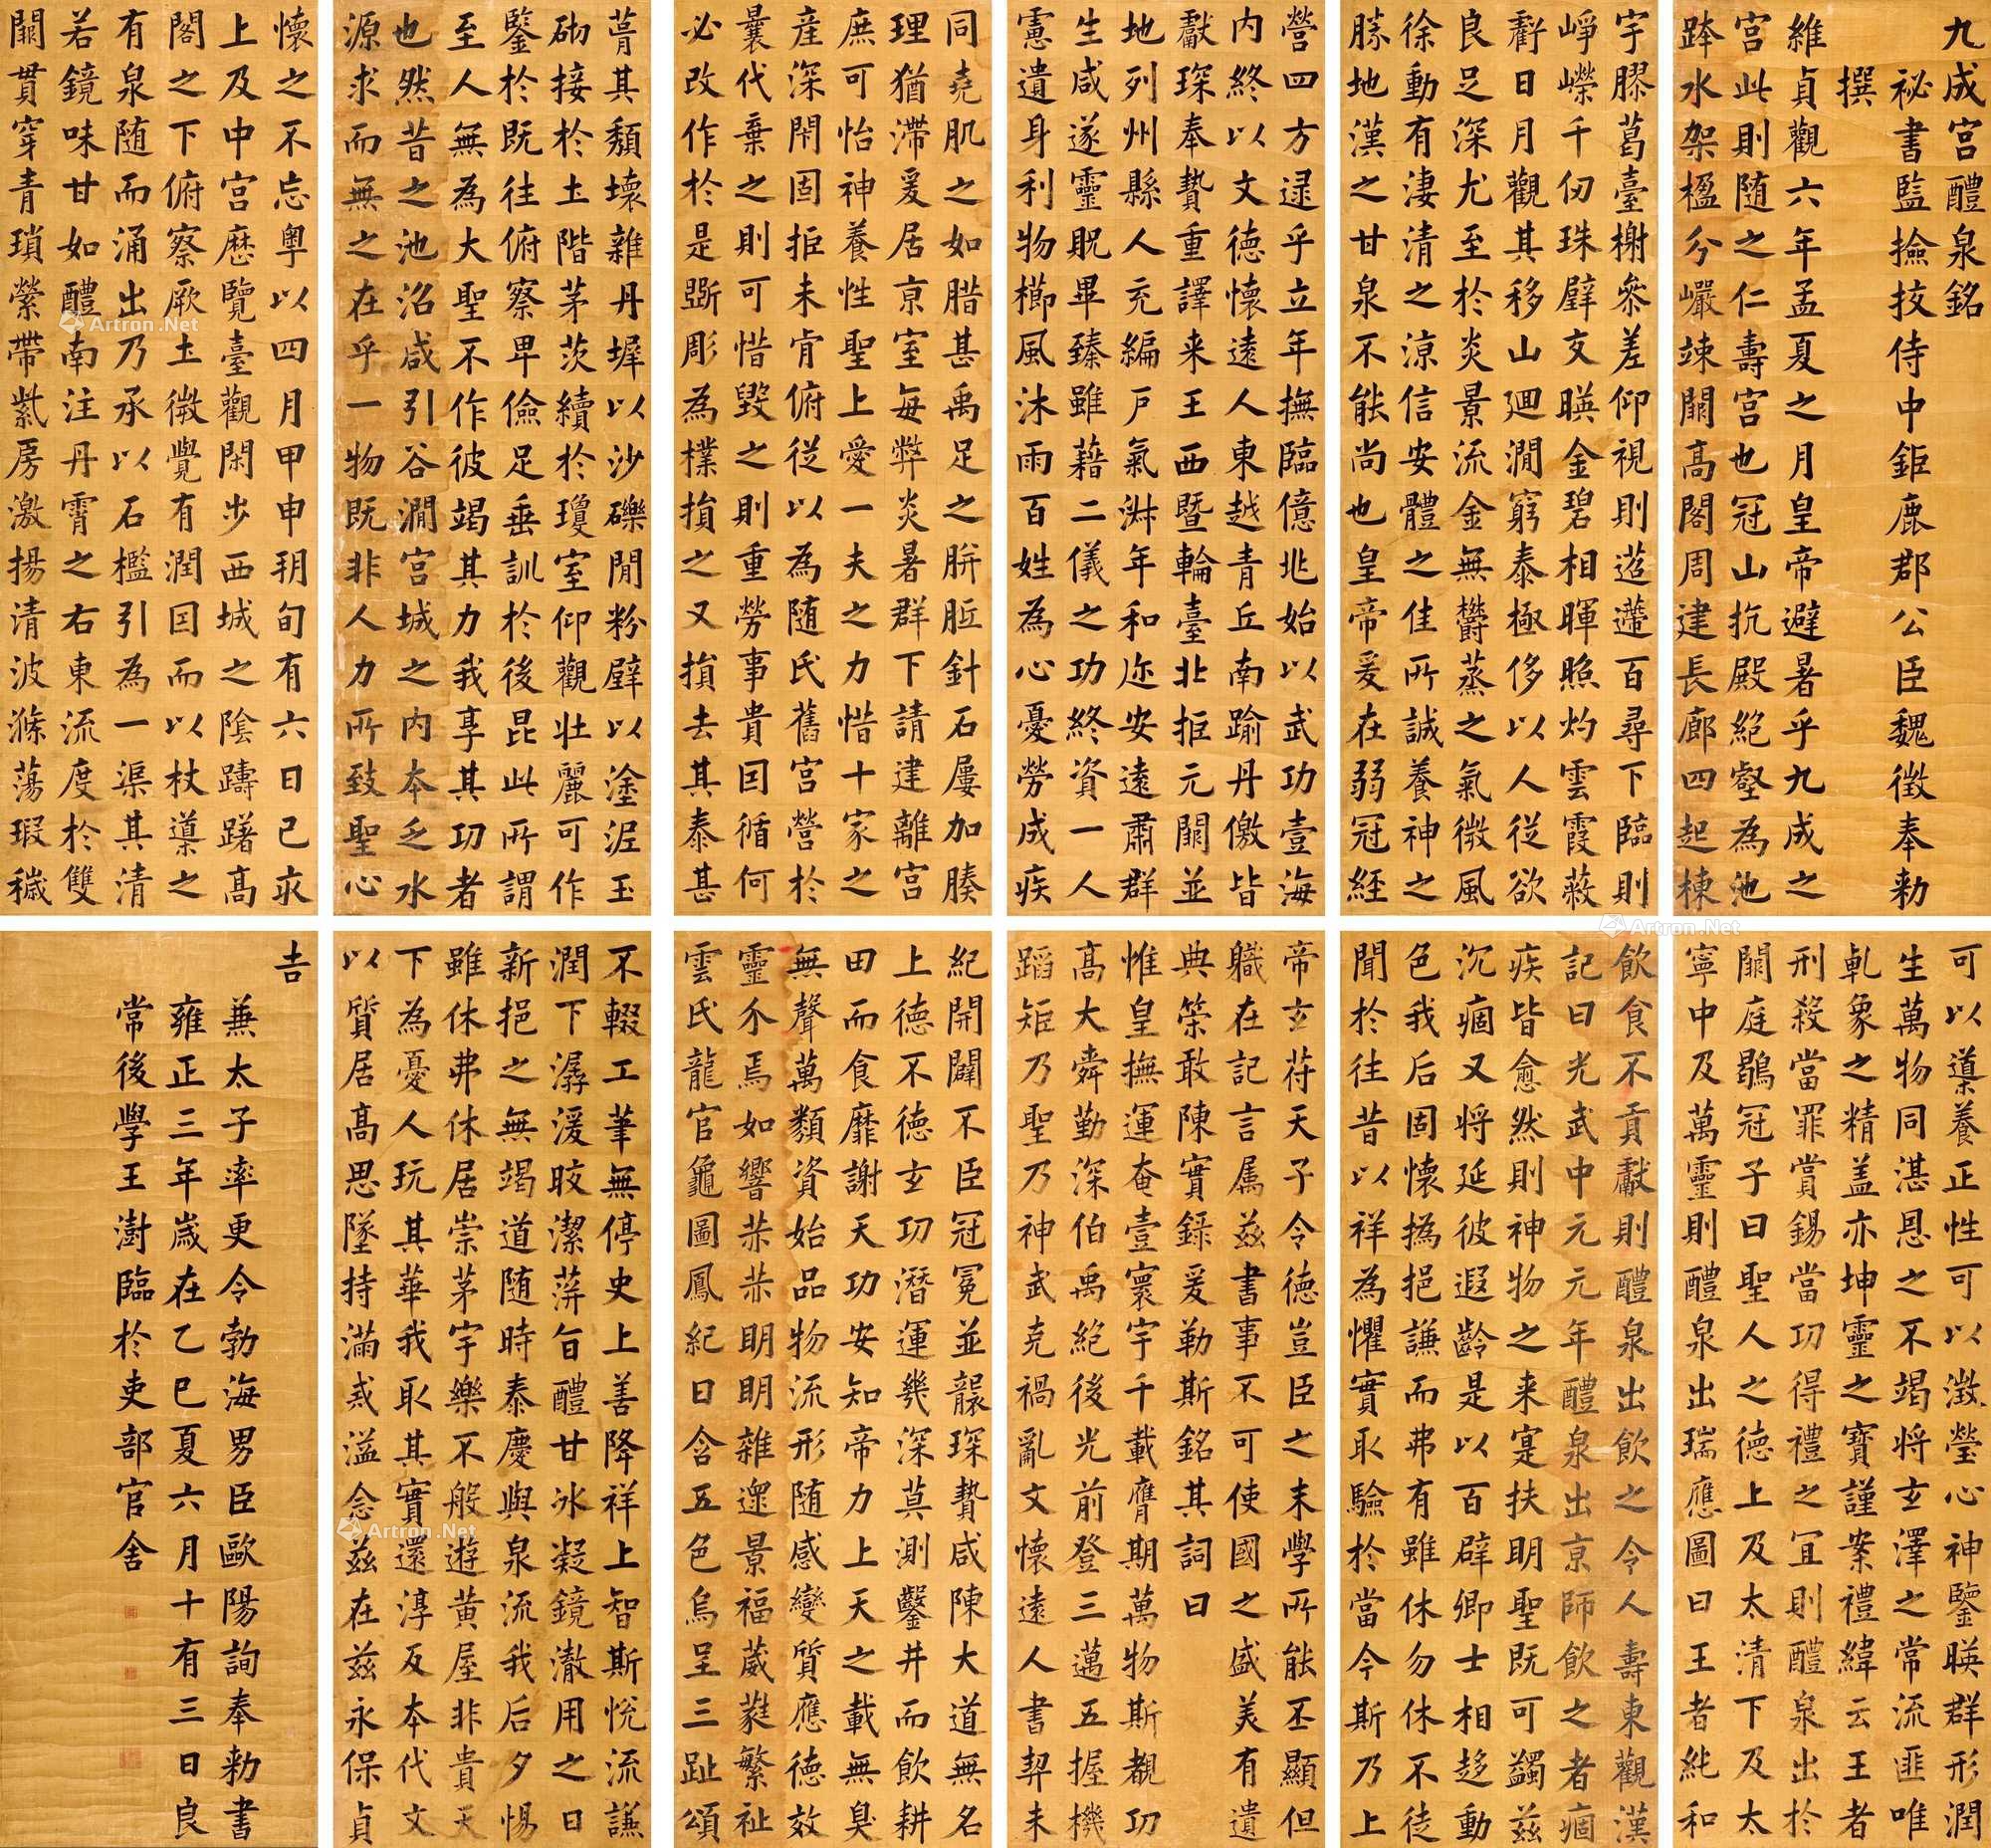 九成宮醴泉銘
祕書監撿挍侍中鉅鹿郡公臣魏徵奉勑
撰
維貞觀六年孟夏之月皇帝避暑乎九成之
宮此則随之仁壽宮也冠山抗殿絕壑為池
跨水架楹分巖竦闕高閣周建長廊四起棟
宇膠葛臺榭參差仰視則迢遰百尋下臨則
崢嶸千仞珠璧交暎金碧相暉照灼雲霞蔽
虧日月觀其移山迴澗窮泰極侈以人從欲
良足深尤至於炎景流金無欝蒸之氣微風
徐動有淒清之涼信安體之佳所誠養神之
勝地漢之甘泉不能尚也皇帝爰在弱冠經
營四方逮乎立年撫臨億兆始以武功壹海
內終以文德懷遠人東越青丘南踰丹儌皆
獻琛奉贄重譯来王西暨輪臺北拒元闕並
地列州縣人充編戶氣淑年和迩安遠肅群
生咸遂靈貺畢臻雖藉二儀之功終資一人
慮遺身利物櫛風沐雨百姓為心憂勞成疾
同堯肌之如腊甚禹足之胼胝針石屢加腠
理猶滯爰居京室每弊炎暑群下請建離宮
庶可怡神養性聖上愛一夫之力惜十家之
産深閇固拒未肯俯從以為随氏舊宮營於
曩代棄之則可惜毀之則重勞事貴因循何
必改作於是斲彫為樸損之又損去其泰甚
葺其頹壞雜丹墀以沙礫間粉壁以塗泥玉
砌接於土階茅茨續於瓊室仰觀壯麗可作
鑒於既往俯察卑儉足垂訓於後昆此所謂
至人無為大聖不作彼竭其力我享其功者
也然昔之池沼咸引谷澗宮城之內本乏水
源求而無之在乎一物既非人力所致聖心
懷之不忘粵以四月甲申朔旬有六日己亥
上及中宮歷覽臺觀閑步西城之陰躊躇高
閣之下俯察厥土微覺有潤因而以杖導之
有泉随而涌出乃承以石檻引為一渠其清
若鏡味甘如醴南注丹霄之右東流度於雙
闕貫穿青瑣縈帶紫房激揚清波滌蕩瑕穢
可以導養正性可以澂瑩心神鑒暎群形潤
生萬物同湛恩之不竭将玄澤之常流匪唯
乾象之精盖亦坤靈之寶謹案禮緯云王者
刑殺當罪賞錫當功得禮之宜則醴泉出於
闕庭鶡冠子曰聖人之德上及太清下及太
寧中及萬靈則醴泉出瑞應圖曰王者純和
飲食不貢獻則醴泉出飲之令人壽東觀漢
記曰光武中元元年醴泉出京師飲之者痼
疾皆愈然則神物之来寔扶明聖既可蠲茲
沉痼又将延彼遐齡是以百辟卿士相趍動
色我后固懷撝挹謙而弗有雖休勿休不徒
聞於往昔以祥為懼實取驗於當今斯乃上
帝玄苻天子令德豈臣之末學所能丕顯但
職在記言属茲書事不可使國之盛美有遺
典策敢陳實錄爰勒斯銘其詞曰
惟皇撫運奄壹寰宇千載膺期萬物斯覩功
高大舜勤深伯禹絕後光前登三邁五握機
蹈矩乃聖乃神武克禍亂文懷遠人書契未
紀開闢不臣冠冕並襲琛贄咸陳大道無名
上德不德玄功潛運幾深莫測鑿井而飲耕
田而食靡謝天功安知帝力上天之載無臭
無聲萬類資始品物流形随感變質應德效
靈介焉如響赫赫明明雜遝景福葳蕤繁祉
雲氏龍官龜圖鳳紀日含五色烏呈三趾頌
不輟工筆無停史上善降祥上智斯悅流謙
潤下潺湲皎潔蓱旨醴甘冰凝鏡澈用之日
新挹之無竭道随時泰慶與泉流我后夕惕
雖休弗休居崇茅宇樂不般遊黃屋非貴天
下為憂人玩其華我取其實還淳反本代文
以質居高思墜持滿戒溢念茲在茲永保貞
吉
兼太子率更令勃海男臣歐陽詢奉勑書
雍正三年歲在乙巳夏六月十有三日良
常後學王澍臨於吏部官舍
Artron.Net
Artron.Net
Artron.Net